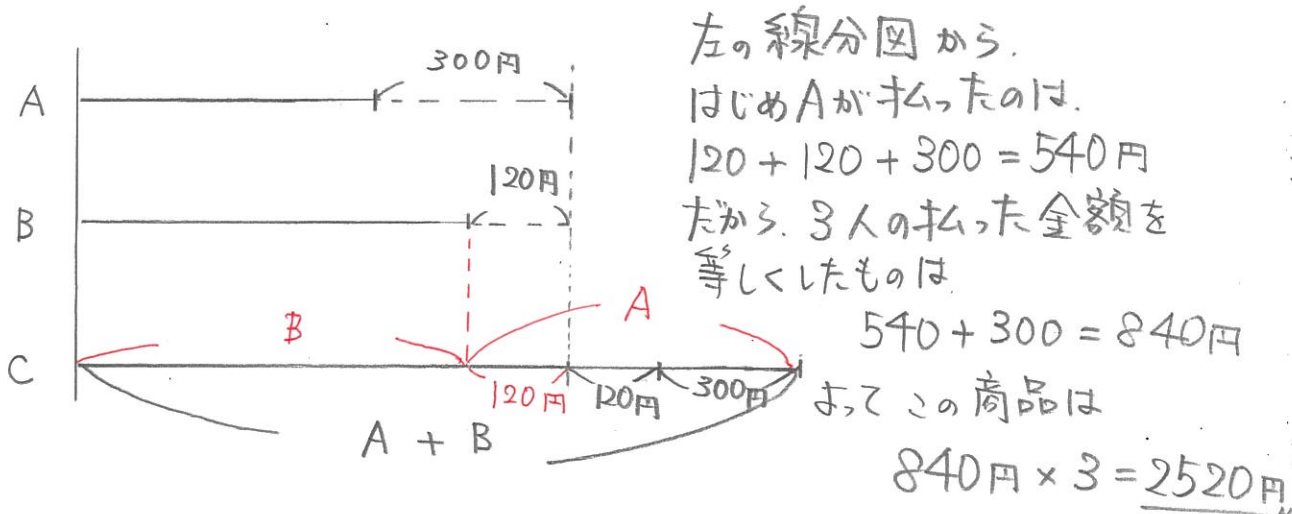 A
300円
B
120円
C
B
A
120円
120円
300円
A + B
左の線分図から.
はじめAが払ったのは.
120 + 120 + 300 = 540円
だから. 3人の払った金額を
等しくしたものは
540 + 300 = 840円
よって この商品は
840円 × 3 = 2520円